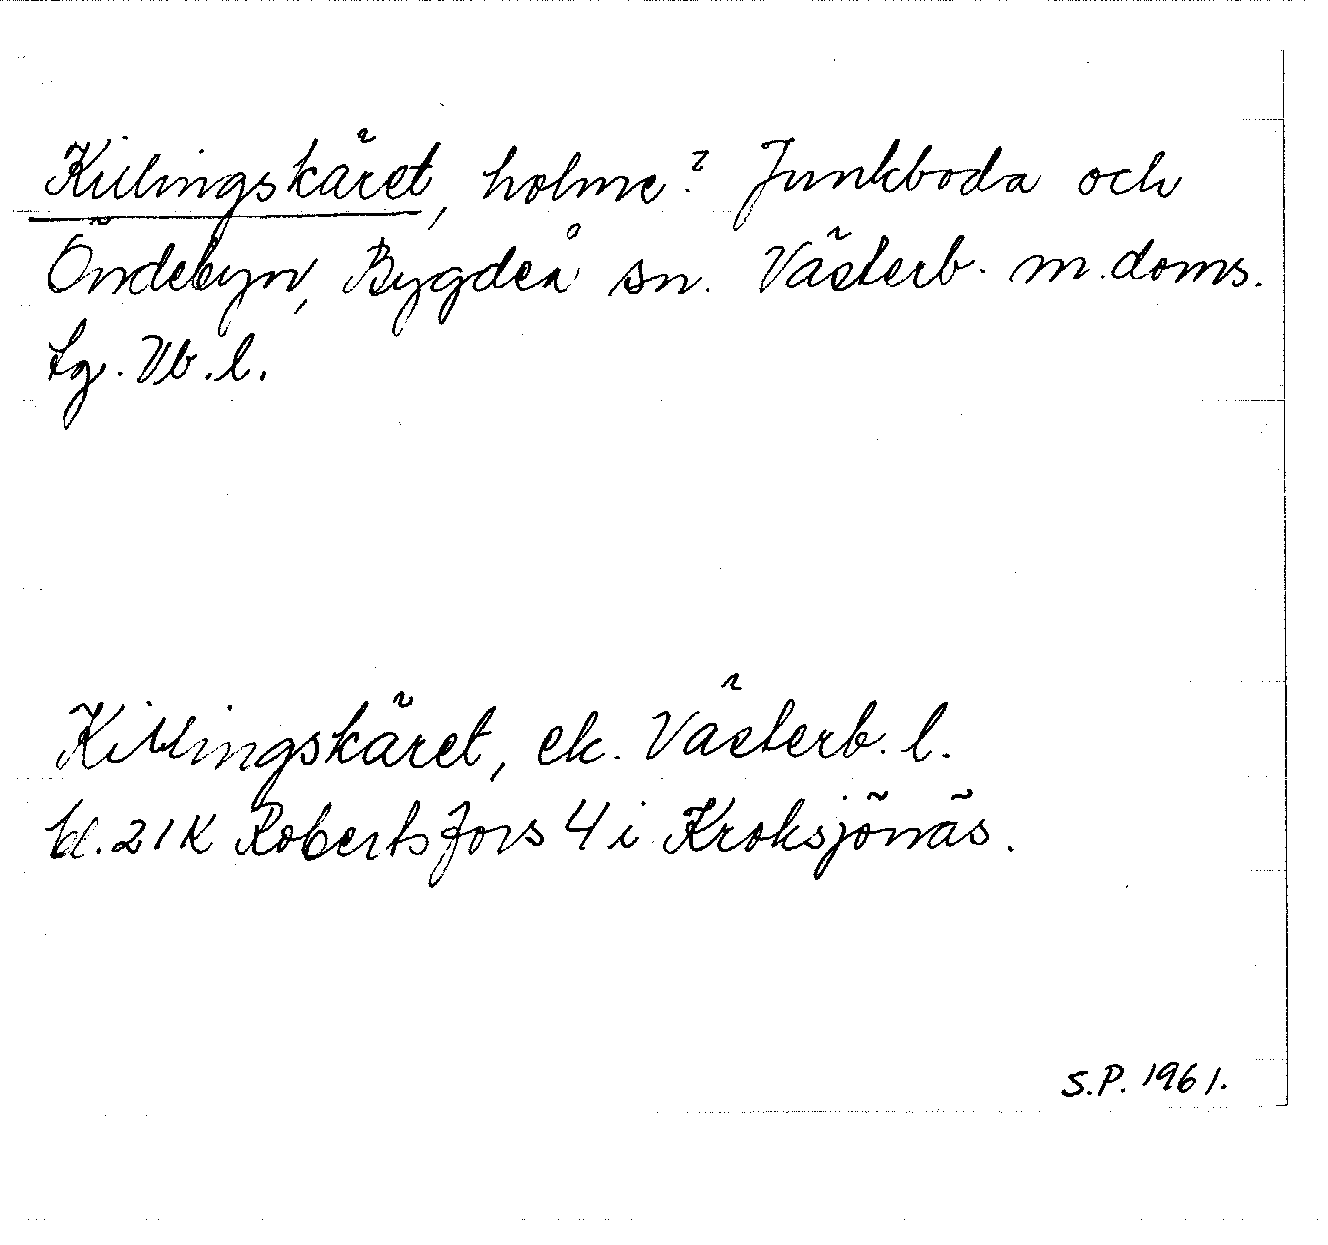 Killingskäret, holme? Junkboda och
Öndebyn, Bygdeå sn. Västerb. m. doms.
tg. Vb. l.
Killingskäret, ek. Västerb. l.
bl. 21K Robertsfors 4 i Kroksjönäs.
S.P. 1961.